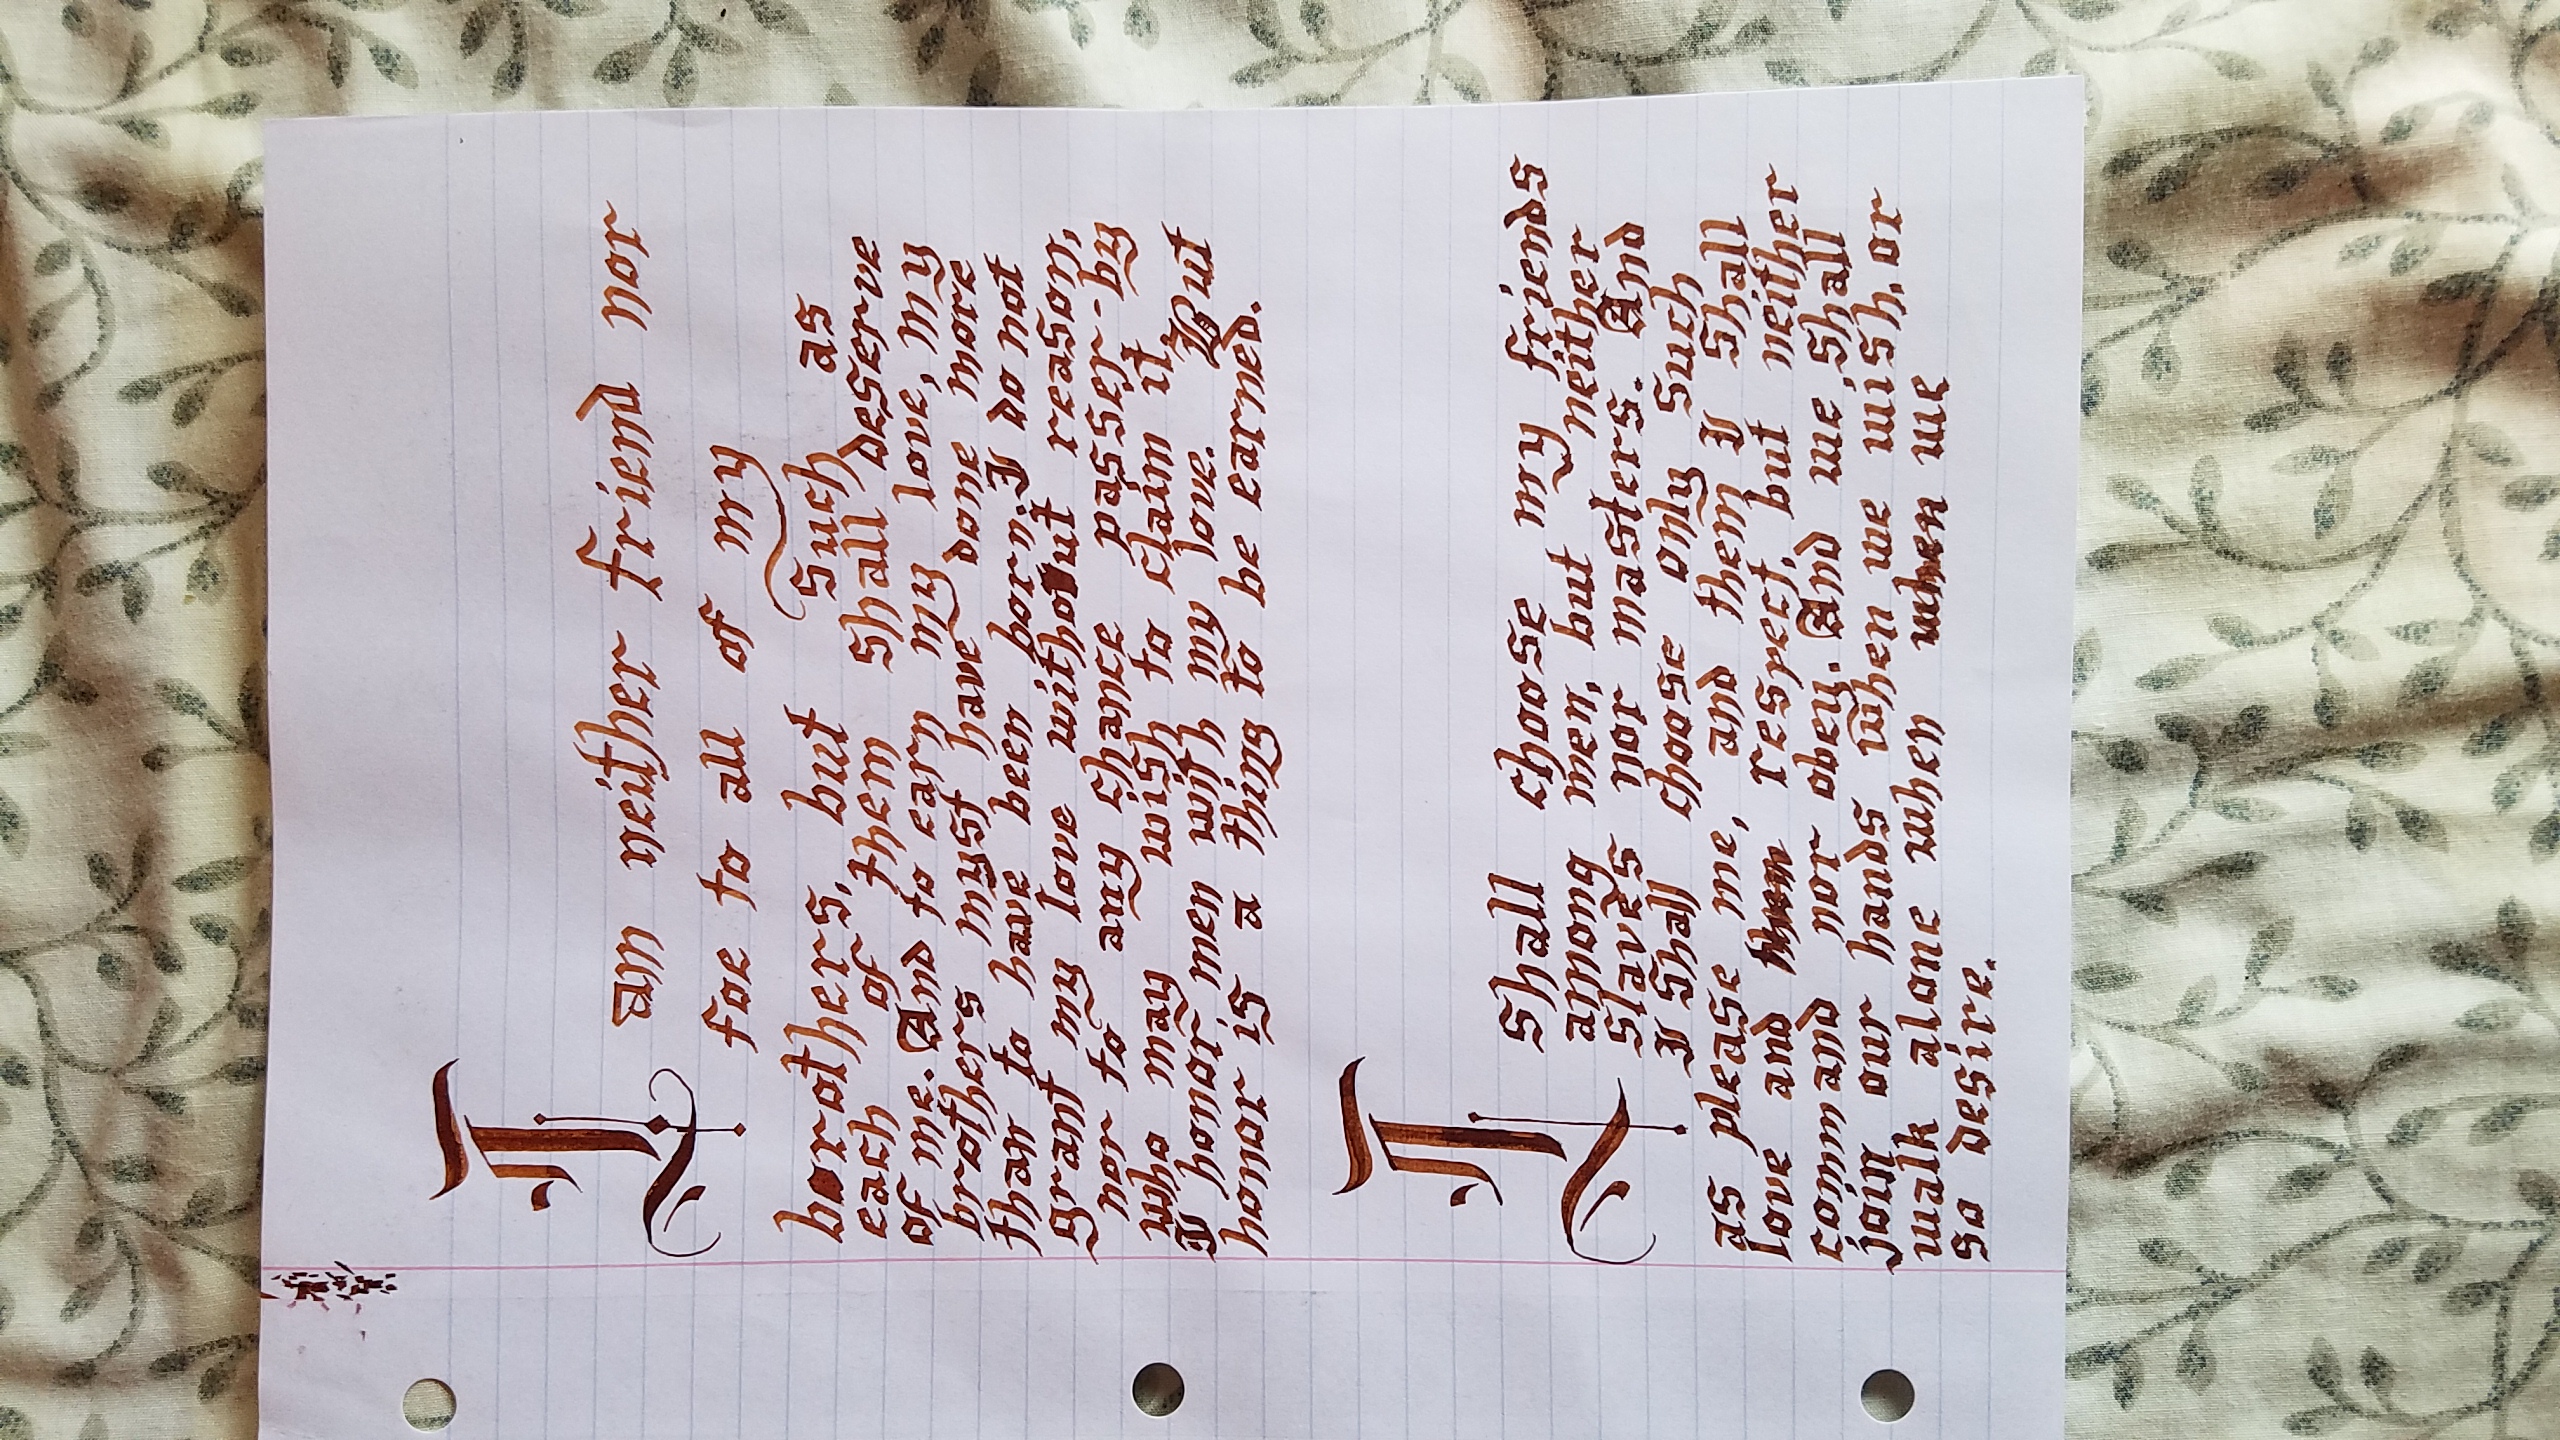 I am neither friend nor
foe to all of my
borothers, but such as
each of them shall deserve
of me. And to earn my love, my
brothers myst have done more
than to have been born. I do not
grant my love without reason,
nor to any chance passer-by
who may wish to claim it.
I honor men with my love. But
honor is a thing to be earned.
I shall choose my friends
among men, but neither
slaves nor masters. And
I shall choose only such
as please me, and them I shall
love and them respect, but neither
command nor obey. And we shall
join our hands when we wish, or
walk alone when when we
so desire.